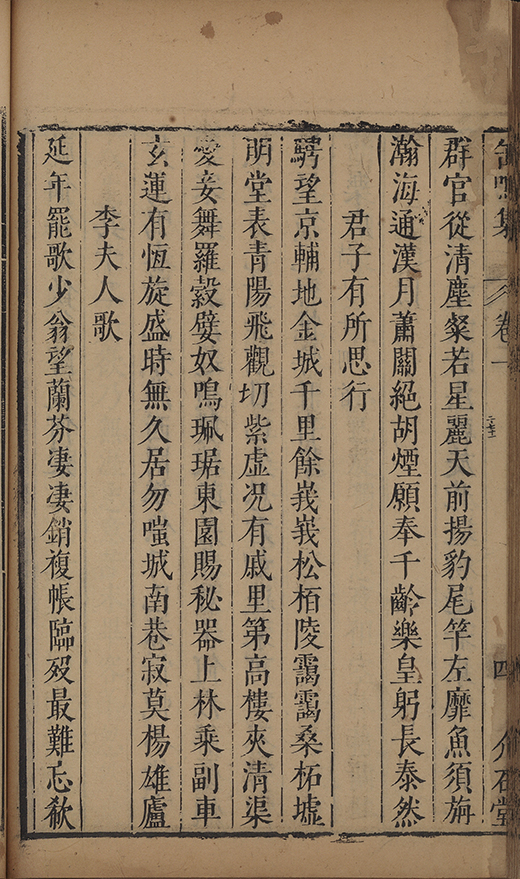 缶鳴集 卷一 四 介石堂
群官從清塵粲若星麗天前揚豹尾竿左靡魚須旃
瀚海通漢月蕭關絕胡煙願奉千齡樂皇躬長泰然
君子有所思行
騁望京輔地金城千里餘峩峩松栢陵靄靄桑柘墟
明堂表青陽飛觀切紫虛况有戚里第高樓夾清渠
愛妾舞羅縠嬖奴鳴珮琚東園賜秘器上林乘副車
玄運有恆旋盛時無久居勿嗤城南巷寂莫楊雄廬
李夫人歌
延年罷歌少翁望蘭芬凄凄銷複帳臨歿最難忘欷